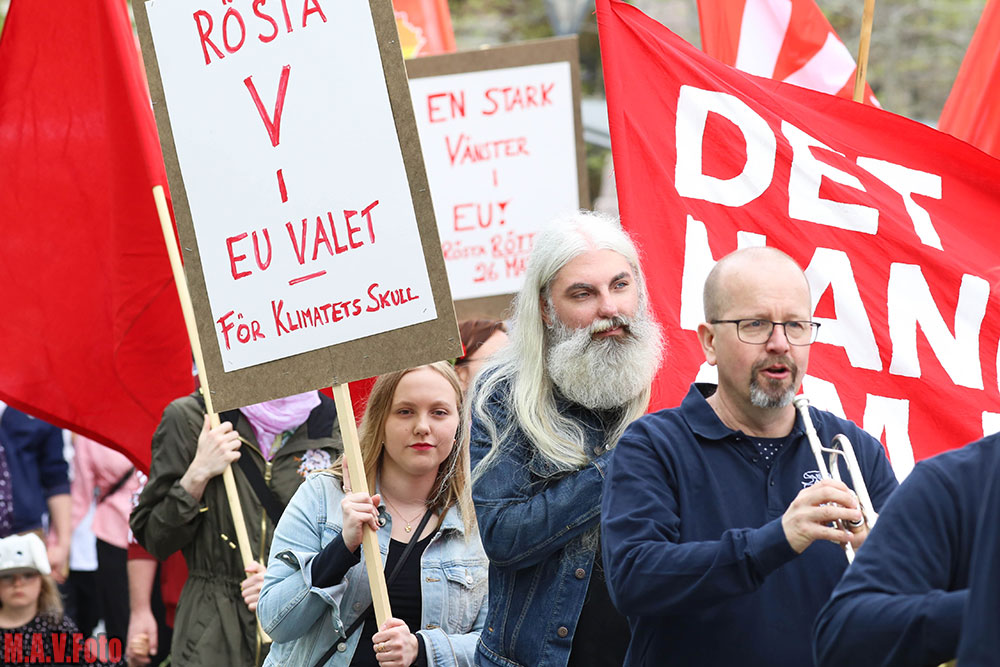 RÖSTA
V
I
EU VALET
FÖR KLIMATETS SKULL
EN STARK
VÄNSTER
I
EU!
RÖSTA RÖTT
26 MAJ
DET
HAN
M.A.V.Foto